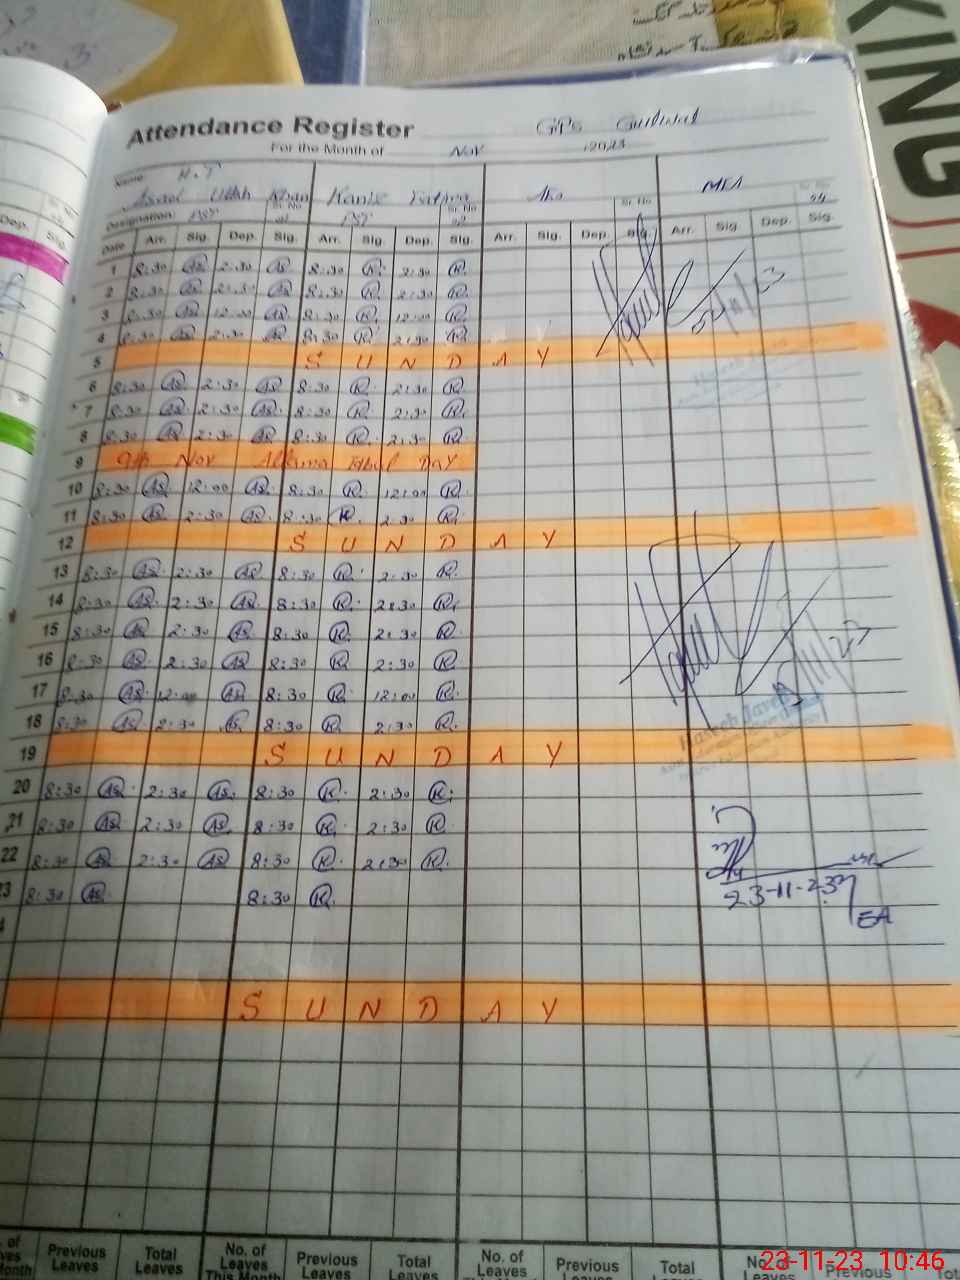 KING
Attendance Register GPS
For the Month of Nov 2023
Name: H.T
Ullah Khan Kaniz Fatima MEA
Sr. No Sr. No Sr. No Sr. No
Designation: PST PST
Date Arr. Sig. Dep. Sig. Arr. Sig. Dep. Sig. Arr. Sig. Dep. Sig. Arr. Sig. Dep. Sig.
1 8:30 AS 2:30 AS 8:30 K 2:30 K
2 8:30 AS 2:30 AS 8:30 K 2:30 K
3 8:30 AS 12:00 AS 8:30 K 12:00 K
4 8:30 AS 2:30 AS 8:30 K 2:30 K
5 S U N D A Y
6 8:30 AS 2:30 AS 8:30 K 2:30 K
7 8:30 AS 2:30 AS 8:30 K 2:30 K
8 8:30 AS 2:30 AS 8:30 K 2:30 K
9 9th Nov Allama Iqbal Day
10 8:30 AS 12:00 AS 8:30 K 12:00 K
11 8:30 AS 2:30 AS 8:30 K 2:30 K
12 S U N D A Y
13 8:30 AS 2:30 AS 8:30 K 2:30 K
14 8:30 AS 2:30 AS 8:30 K 2:30 K
15 8:30 AS 2:30 AS 8:30 K 2:30 K
16 8:30 AS 2:30 AS 8:30 K 2:30 K
17 8:30 AS 12:00 AS 8:30 K 12:00 K
18 8:30 AS 2:30 AS 8:30 K 2:30 K
19 S U N D A Y
20 8:30 AS 2:30 AS 8:30 K 2:30 K
21 8:30 AS 2:30 AS 8:30 K 2:30 K
22 8:30 AS 2:30 AS 8:30 K 2:30 K
23 8:30 AS 8:30 K
23-11-23
EA
S U N D A Y
Previous Leaves Total Leaves No. of Leaves This Month Previous Leaves Total Leaves No. of Leaves Previous Leaves Total Leaves Previous
23-11-23 10:46